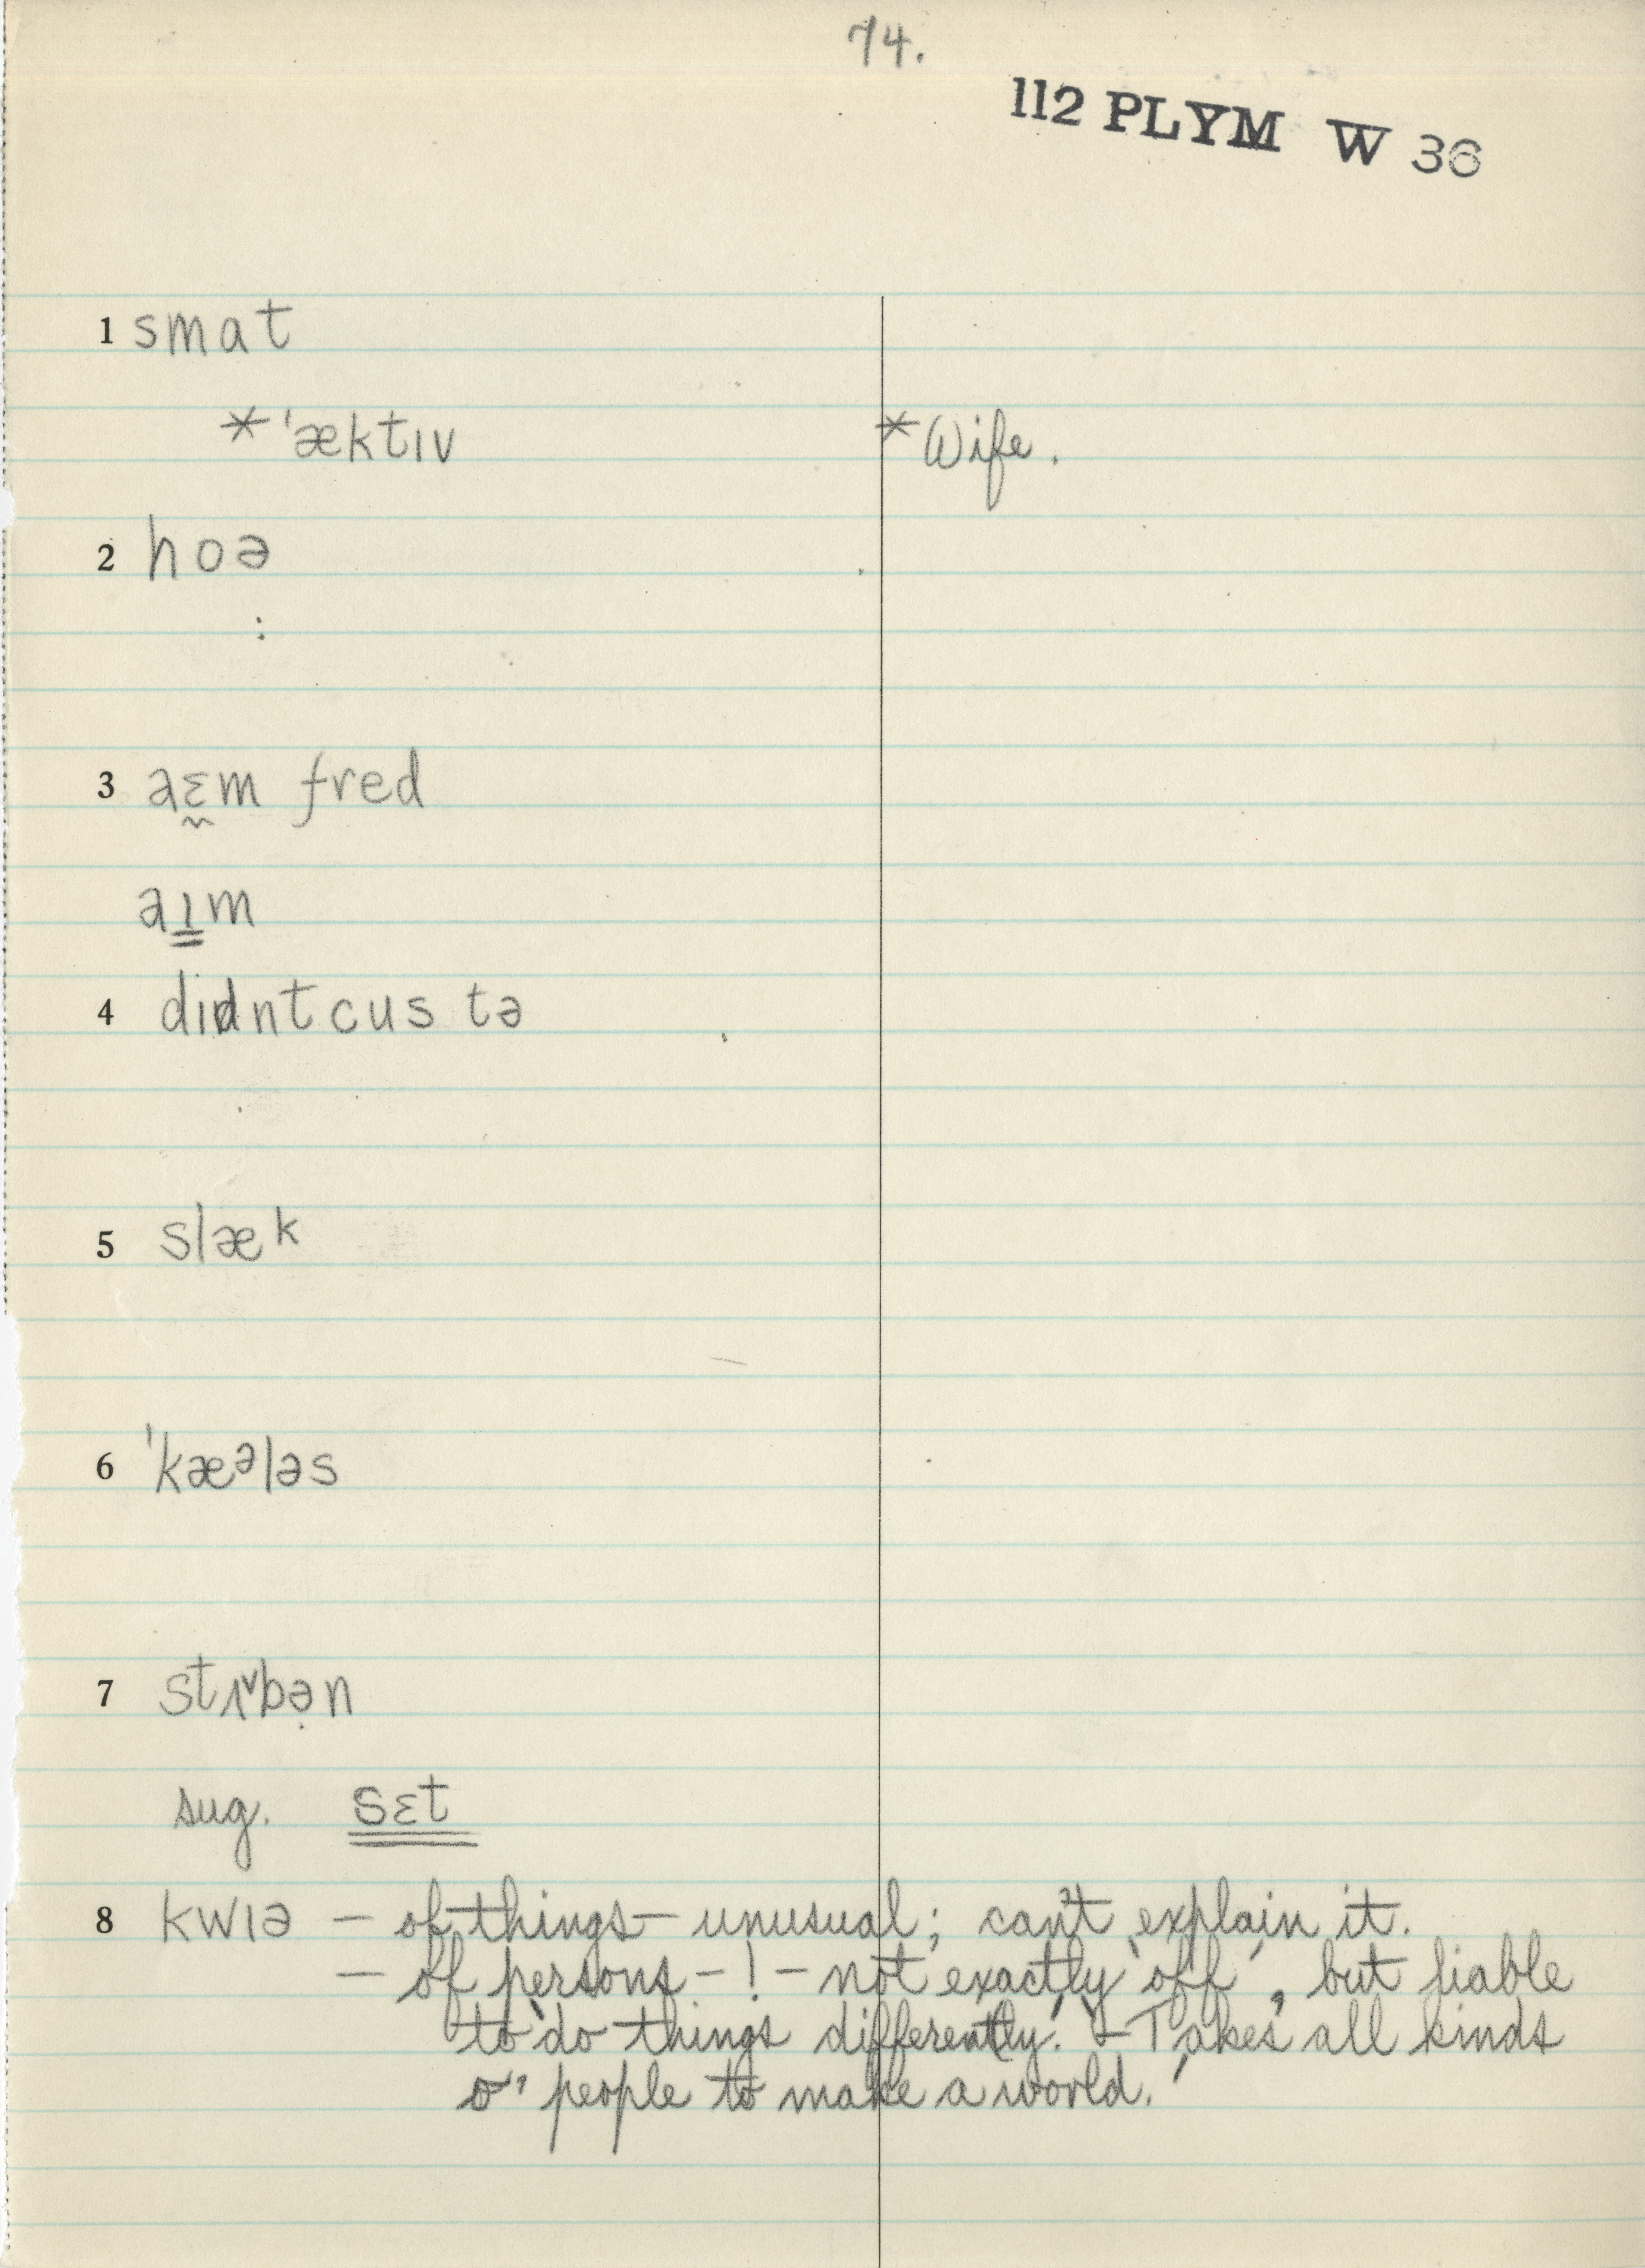 74.
112 PLYM W 36
1 smat
*ˈæktɪv *Wife.
2 hoə
:
3 aɛ̰m fred
aɪ̳m
4 dɪdnt cus tə
5 slæk
6 ˈkæᵊləs
7 stʌ˅bə̣n
sug. sɛt
8 kwɪə – of things – unusual; can't explain it.
– of persons – ! – not exactly 'off', but liable
to 'do things differently.' – 'Takes all kinds
o' people to make a world.'